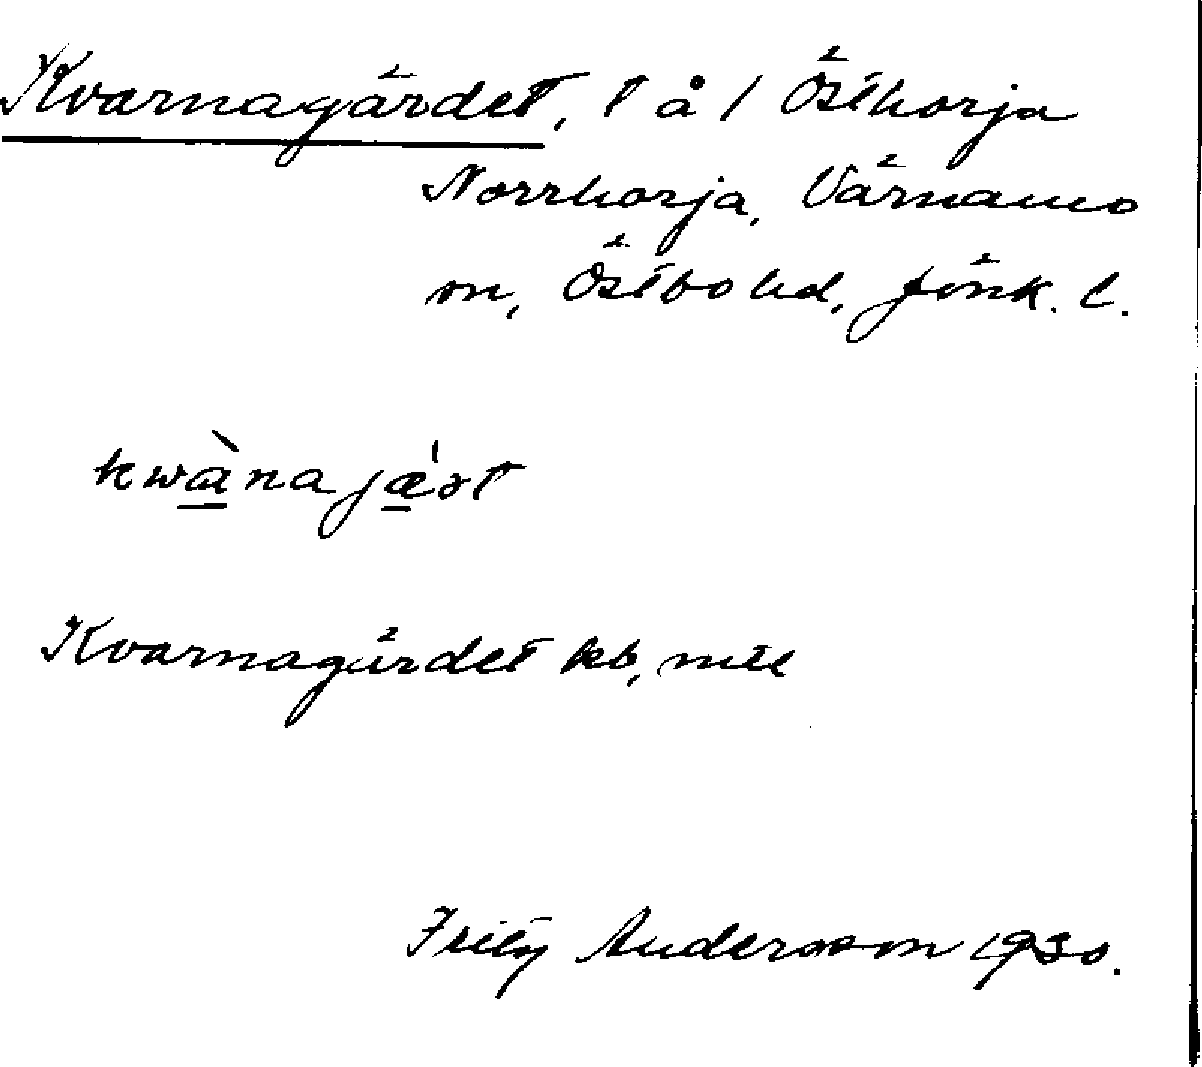 Kvarnagärdet, t å 1 Östhorja
Norrhorja, Värnamo
sn, Östbo hd, Jönk. l.
kwànajǽst
Kvarnagärdet kb, mtl
Andersson 1930.